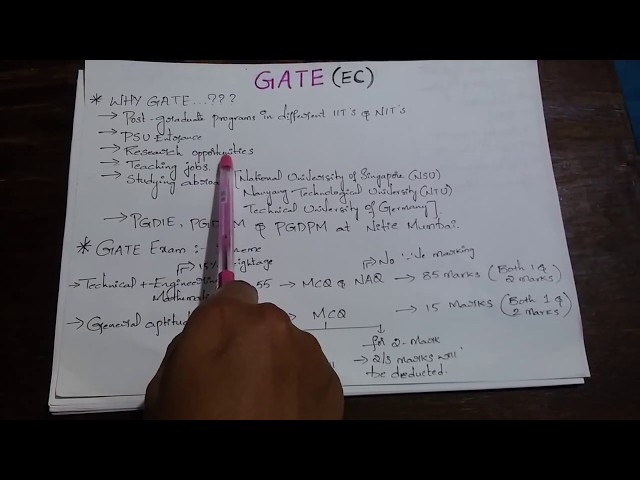 GATE (EC)
* WHY GATE...???
→ Post-graduate programs in different IIT's & NIT's
→ PSU Entrance
→ Research opportunities
→ Teaching jobs.
→ Studying abroad [National University of Singapore (NSU)
Nanyang Technological University (NTU)
Technical University of Germany].
→ PGDIE, PGDPM at Nitie Mumbai.
* GATE Exam :-
15% weightage
No '-'ve marking
→ Technical + Engineering Mathematics
55 → MCQ & NAQ → 85 marks (Both 1 & 2 marks)
→ General aptitude → MCQ → 15 marks (Both 1 & 2 marks)
for 2-Mark
→ 2/3 marks will
be deducted.